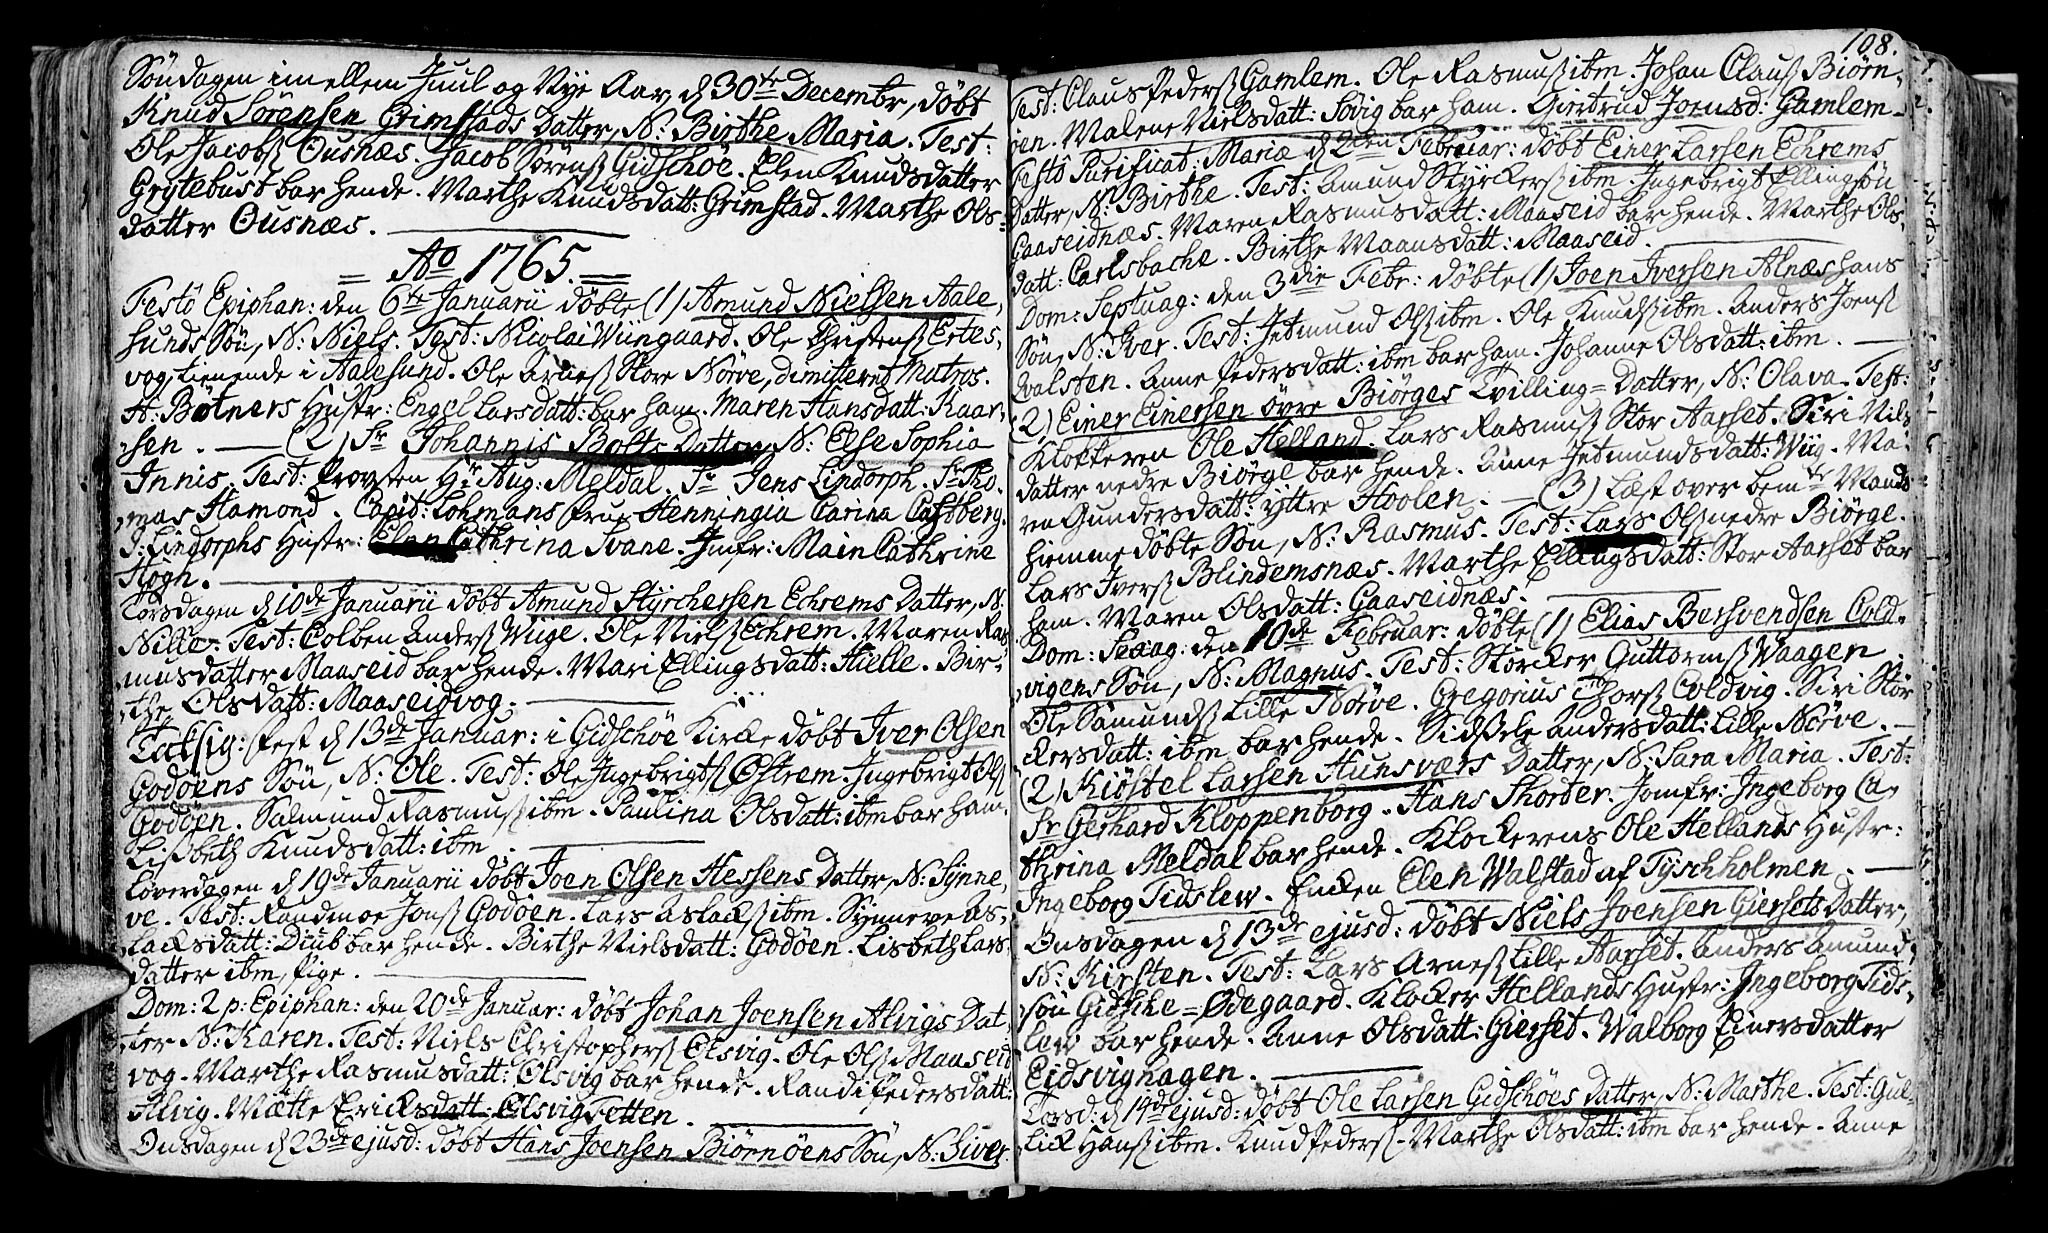 Søndagen imellem Juul og Nye Aar, d 30te Decembr, døbt
Knud Sørensen Grimstads Datter, N: Birthe Maria. Test:
Ole Jacobs Ousnæs. Jacob Sørens Gidschøe. Elen Knudsdatter
Grytebust bar hende. Marthe Knudsdatt: Grimstad. Marthe Ols-
datter Ousnæs.
= Ao 1765. =
Festô Epiphan: den 6te Januarii døbte (1) Amund Nielsen Aale-
sunds Søn, N: Niels. Test: Nicolai Wiingaard. Ole Christens Ertes-
vog, tienende i Aalesund. Ole Arnes Store Nörve, dimitteret Matros.
H: Botners Hustr: Engel Larsdatt: bar ham. Maren Hansdatt: Kaar-
sen. — (2) Sr Johannis Bolts Datter, N: Else Sophia
Innis. Test: Provsten Hr Aug: Meldal. Sr Jens Lindorph. Sr Tho-
mas Hamond. Capit: Lohmans Frue Henningia Carina Castberg.
J: Lindorphs Hustr: Elen Cathrina Svane. Jmfr: Main Cathrine
Høgh.
Torsdagen d 10de Januarii døbt Amund Styrchersen Echrems Datter, N:
Nille. Test: Colben Anders Wiige. Ole Niels Echrem. Maren Ras-
musdatter Maaseid bar hende. Mari Ellingsdatt: Hielle. Bir-
the Olsdatt: Maaseidvog.
Taksig: fest d 13de Januar: i Gidschøe Kirke døbt Iver Olsen
Godøens Søn, N: Ole. Test: Ole Ingebrigts Østrem. Ingebrigt Ols
Godøen. Salmund Rasmus ibm. Paulina Olsdatt: ibm bar ham.
Lisbeth Knudsdatt: ibm.
Løverdagen d 19de Januarii døbt Joen Olsen Hessens Datter, N: Synne-
ve. Test: Randmoe Jons Godøen. Lars Aslacks ibm. Synneve As-
lacksdatt: Diub bar hende. Birthe Nielsdatt: Godøen. Lisbeth Lars-
datter ibm, Pige.
Dom: 2 p: Epiphan: den 20de Januar: døbt Johan Joensen Alvigs Dat-
ter N: Karen. Test: Niels Christophers Olsvig. Ole Ols Maaseid
vog. Marthe Rasmusdatt: Olsvig bar hende. Randi Pedersdatt:
Alvig. Mætte Ericksdatt: Olsvig Tetten.
Onsdagen d 23de ejusd: døbt Hans Joensen Biørnøens Søn, N: Siver.
108.
Test: Claus Peders Gamlem. Ole Rasmus ibm. Johan Claus Biørn-
øen. Malene Nielsdatt: Søvig bar ham. Giertrud Joensd: Gamlem.
Festô Purificat: Mariæ d 2den Februar: døbt Einer Larsen Echrems
Datter, N: Birthe. Test: Amund Styrckers ibm. Ingebrigt Ellingsøn
Gaaseidnæs. Maren Rasmusdatt: Maaseid bar hende. Marthe Ols-
datt: Carlsbache. Birthe Maansdatt: Maaseid.
Dom: Septuag: den 3die Febr: døbte (1) Joen Iversen Alnæs hans
Søn, N: Iver. Test: Jetmund Ols ibm. Ole Knuds ibm. Anders Joens
Qvalsten. Anne Pedersdatt: ibm bar ham. Johanne Olsdatt: ibm. —
(2) Einer Einersen övre Biörges Tvilling = Datter, N: Olava. Test:
Klokkeren Ole Helland. Lars Rasmus Stor Aarset. Siri Niels-
datter nedre Biörge bar hende. Anne Jetmundsdatt: Wiig. Ma-
ren Gundersdatt: ÿttre Hoolen. — (3) Læst over bemte Mands
hiemmedøbte Søn, N: Rasmus. Test: Lars Ols nedre Biørge.
Lars Ivers Blindemsnæs. Marthe Ellingsdatt: Stor Aarset bar
ham. Maren Olsdatt: Gaaseidnæs.
Dom: Sexag: den 10de Februar: døbte (1) Elias Bersvendsen Cold-
vigens Søn, N: Magnus. Test: Störcker Guttorms Waagen.
Ole Sâmunds Lille Nörve. Gregorius Thors Coldvig. Siri Stör-
kersdatt: ibm bar hende. Sidsele Andersdatt: Lille Nörve. —
(2) Kiöstel Larsen Hunsværs Datter, N: Sara Maria. Test:
Sr Gerhard Kloppenborg. Hans Thorder. Jomfr: Ingeborg Ca-
thrina Meldal bar hende. Klockerens Ole Hellands Hustr:
Ingeborg Tidslew. Encken Elen Walstad af Tyschholmen. —
Onsdagen d 13de ejusd: døbt Niels Joensen Giersets Datter,
N: Kirsten. Test: Lars Arnes Lille Aarset. Anders Amund-
søn Gidsche = Ødegaard. Klocker Hellands Hustr: Ingeborg Tids-
lew bar hende. Anne Olsdatt: Gierset. Walborg Einersdatter
Eidsvighagen.
Torsd: d 14de ejusd: døbt Ole Larsen Gidschøes Datter, N: Marthe. Test: Gul-
lick Hans ibm. Knud Peders. Marthe Olsdatt: ibm bar hende. Anne